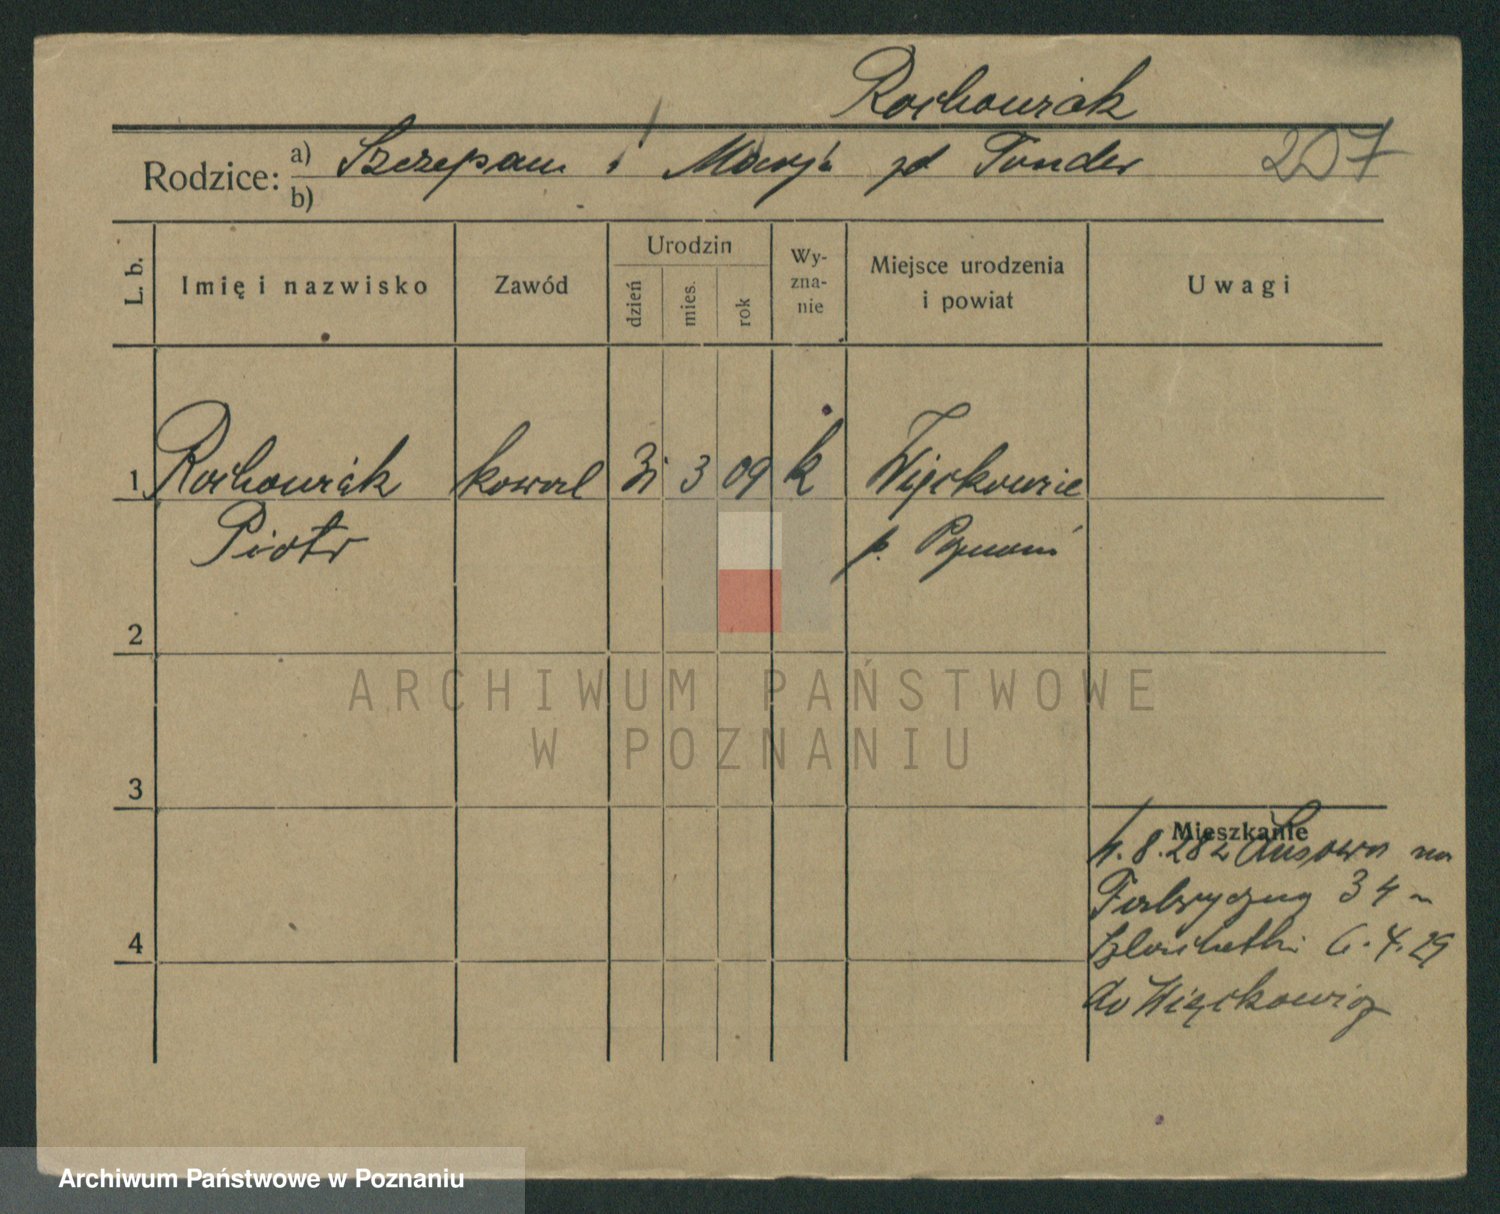 Rochowiak
Rodzice: a) Szczepan i Marja zd Tonder 207
b)
L. b. Imię i nazwisko Zawód Urodzin dzień mies. rok Wyznanie Miejsce urodzenia i powiat Uwagi
1 Rochowiak kowal 31 3 09 k Więckowice
Piotr p. Poznań
2
ARCHIWUM PAŃSTWOWE
W POZNANIU
3
Mieszkanie
4.8.28 z Lusowa na
Fabryczną 34
4
Szlachetki 6.4.29
do Więckowic
Archiwum Państwowe w Poznaniu